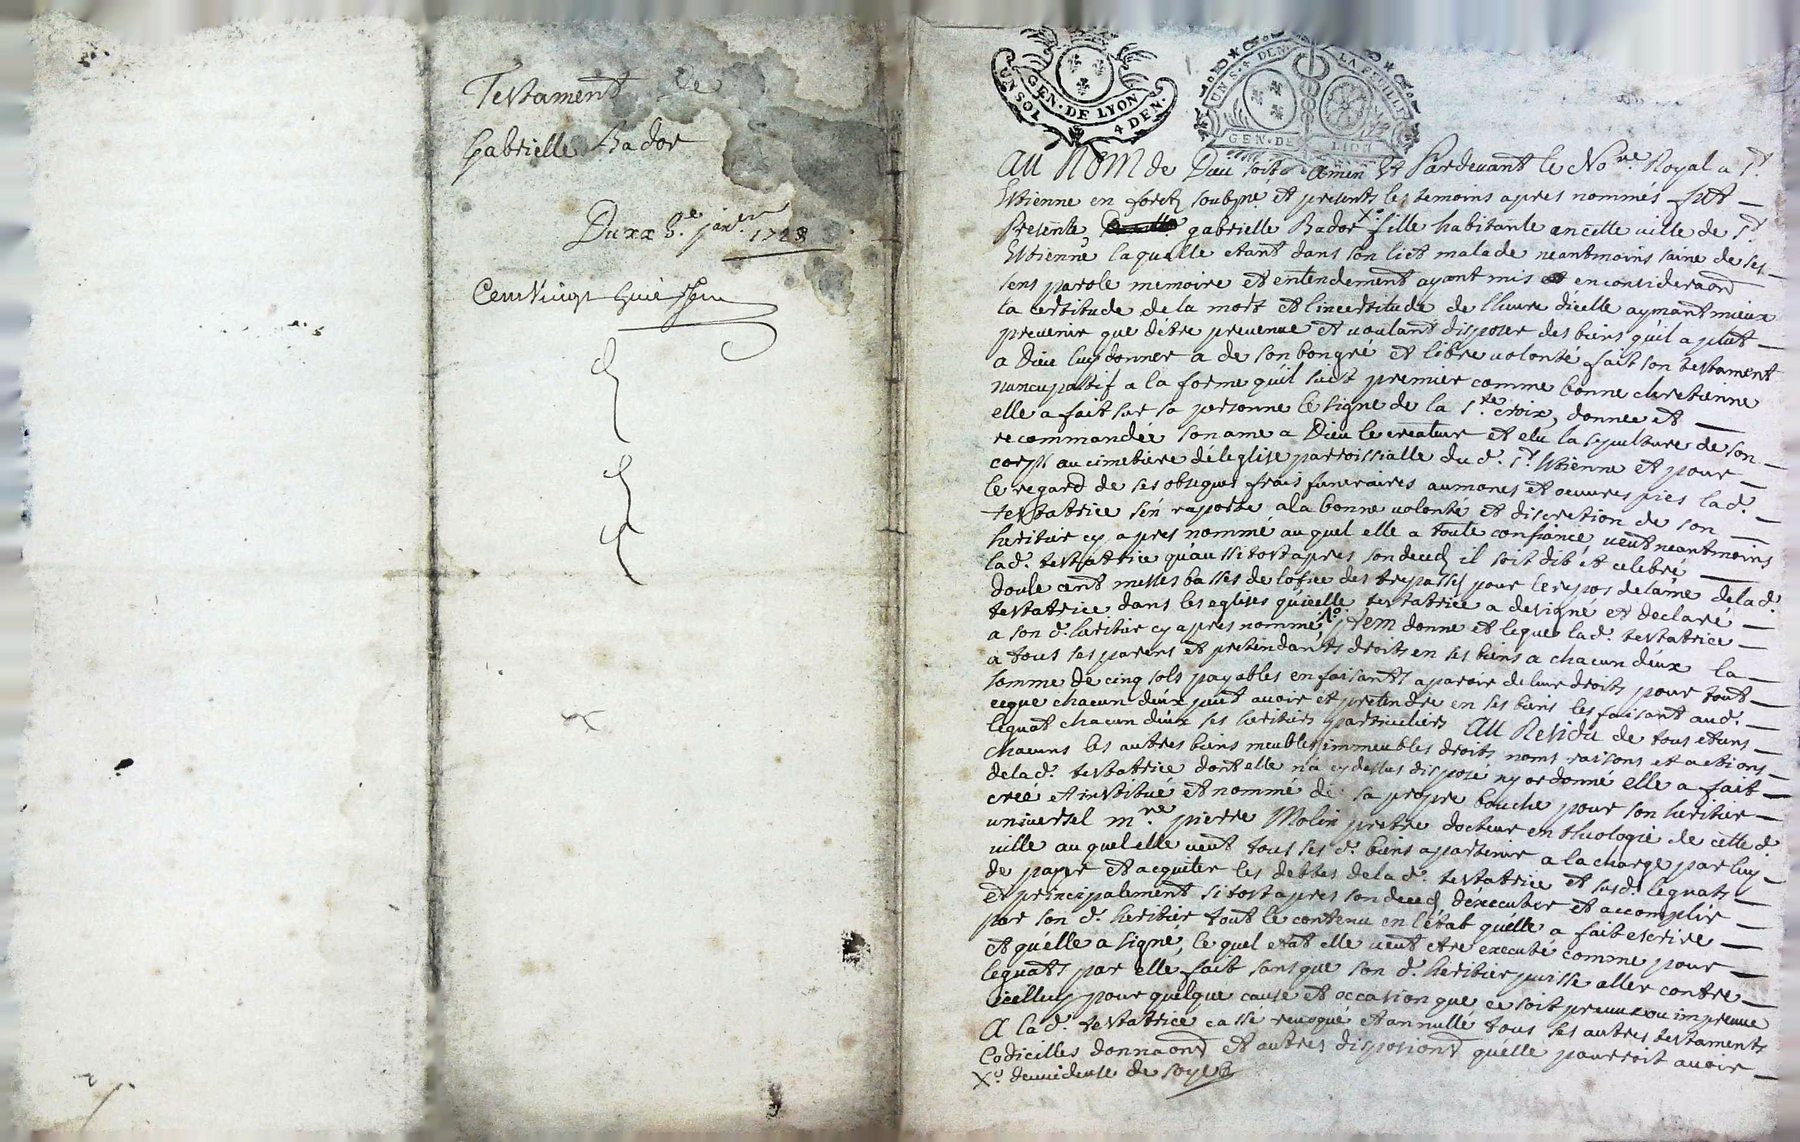 Testament de
Gabrielle Bador
Du xx 8.e janv.er 1728
Cent Vingt huit
UN SOL
GEN. DE LYON
4 DEN.
UN S. 4 DEN. LA FEUILLE
GEN. DE LION
Au Nom de Dieu soit amen Et Pardevant le No.re Royal a S.t
Estienne en forests soubsné et presents les temoins apres nommés fut
Presente gabrielle Bador X.o fille habitante en cette ville de S.t
Estienne laquelle etant dans son lict malade neantmoins saine de ses
sens parole memoire et entendement ayant mis en consideraon
la certitude de la mort et l'incertitude de lheure dicelle aymant mieux
prevenir que d'être prevenue et voulant disposer des biens qu'il a plut
a Dieu luy donner a de son bon gré et libre volonté fait son testament
nuncupattif a la forme qu'il suit premier comme bonne chretienne
elle a fait sur sa personne le signe de la S.te croix, donnee et
recommandée son ame a Dieu le createur et elu la sepulture de son
corps au cimetiere de leglise parroissialle du d. S.t Estienne et pour
le regard de ses obseques frais funeraires aumones et oeuvres pies lad.
testatrice s'en raporte a la bonne volonté et discretion de son
heritier cy apres nommé auquel elle a toute confiance, veut neantmoins
lad. testattrice qu'aussitost apres son deces il soit dit et celebré
douse cent messes basses de lofice des trepassés pour le repos de lame de la d.
testatrice dans les eglises qu'icelle testatrice a designé et declaré
a son d. heritier cy apres nommé, Item donne et legue lad. testatrice
a tous ses parens et pretendants droits en ses biens a chacun d'eux la
somme de cinq sols payables en faisants aparoir de leur droits pour tout
ceque chacun d'eux peut avoir et pretendre en ses biens les faisant aud.
legat chacun d'eux ses heritiers particuliers Au Residu de tous et uns
chacuns les autres biens meubles immeubles droits noms raisons et actions
de la d. testatrice dont elle n'a cy dessus disposé ny ordonné elle a fait
creé et institué et nommé de sa propre bouche pour son heritier
universel m.re pierre Molin pretre docteur en theologie de cette d.
ville auquel elle veut tous ses d. biens apartenir a la charge par luy
de payer et acquiter les dettes de la d. testatrice et susd. leguats
et principalement sitost apres son deces d'executer et accomplir
par son d. heritier tout le contenu en l'état qu'elle a fait escrire
et qu'elle a signé, lequel etat elle veut etre executé comme pour
leguats par elle fait sans que son d. heritier puisse aller contre
icelluy pour quelque cause et occasion que ce soit preuue ou impreuue
A la d. testatrice casse revoqué et annullé tous ses autres testaments
Codicilles donnaons et autres disposions qu'elle pourroit avoir
X.o devuideuse de soye